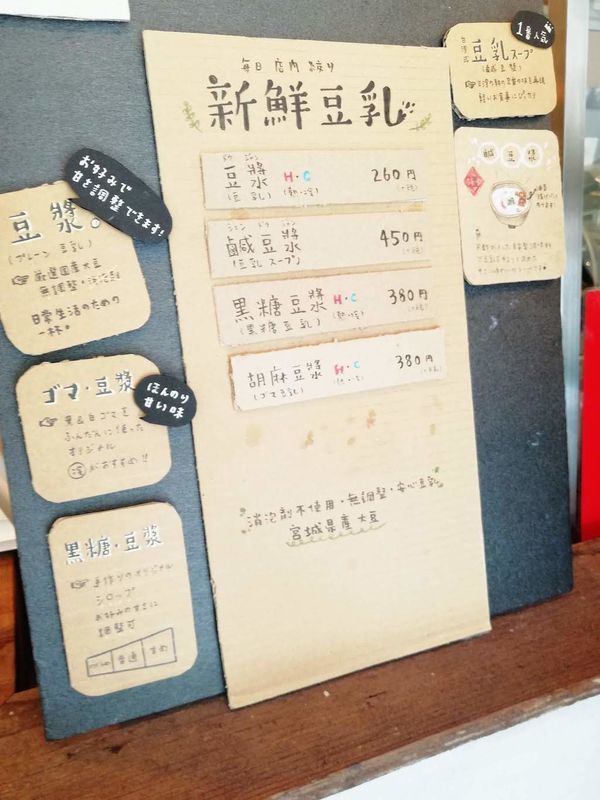 毎日店内絞り
新鮮豆乳
ドウ ジャン
豆漿 H・C 260円
(豆乳) (熱・冷)
シェン ドウ ジャン
鹹豆漿 450円
(豆乳スープ)
黒糖豆漿 H・C 380円
(黒糖豆乳) (熱・冷)
胡麻豆漿 H・C 380円
(ゴマ豆乳)
消泡剤不使用・無調整・安心豆乳
宮城県産大豆
お好みで
甘さ調整できます!
豆漿。
(プレーン豆乳)
厳選国産大豆
無調整・
日常生活のための
一杯。
ゴマ・豆漿
ほんのり
甘い味
黒&白ゴマを
ふんだんに使った
オリジナル
冷がおすすめ!!
黒糖・豆漿
手作りのオリジナル
シロップ
お好みの甘さに
調整可
普通
1番人気
台湾式
豆乳スープ
(鹹豆漿)
軽いお食事にぴったり
鹹豆漿